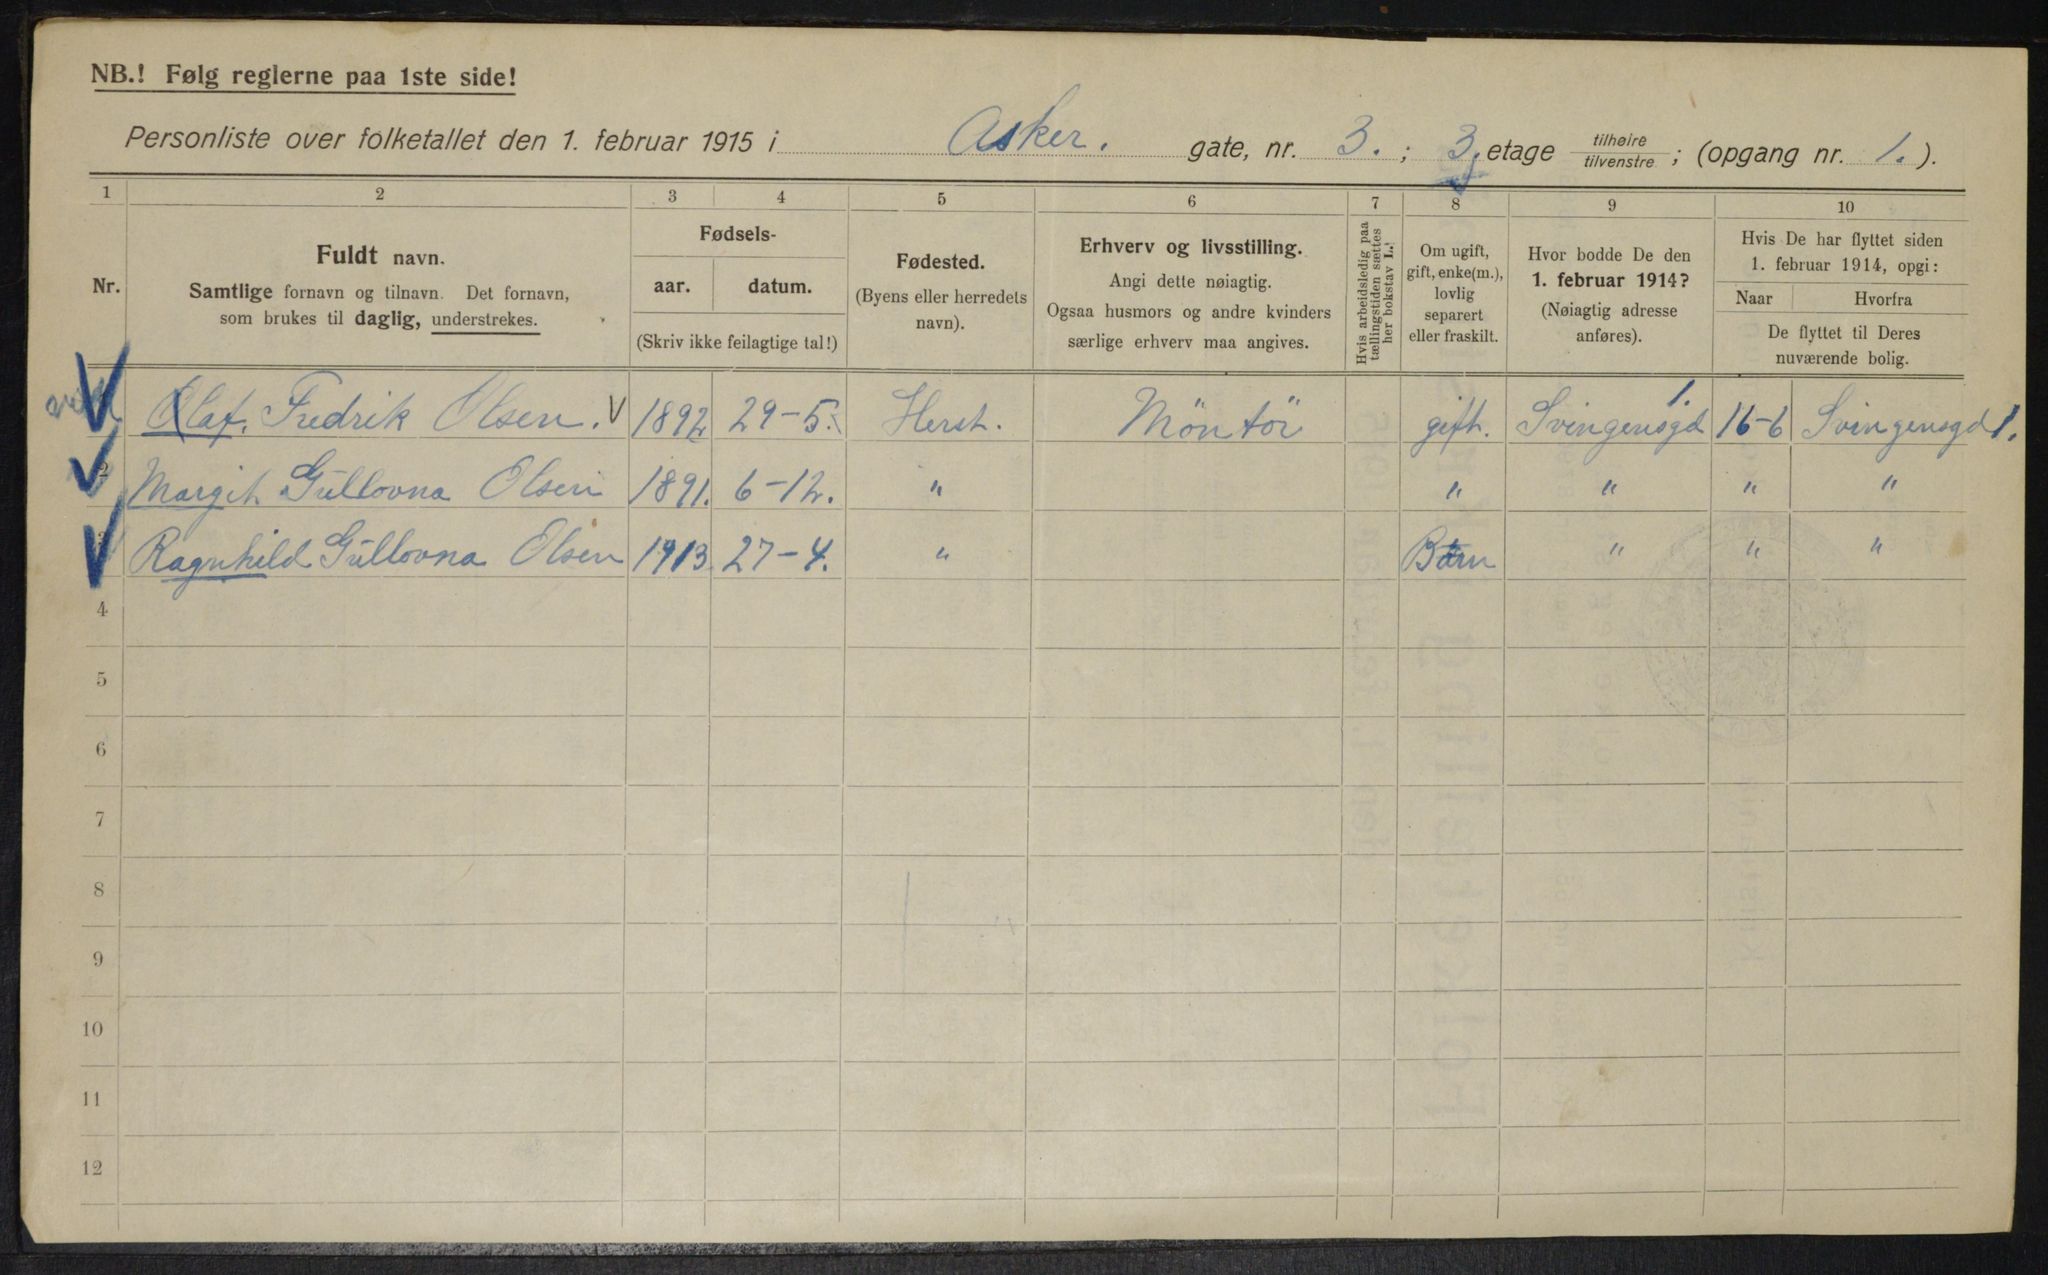 NB.! Følg reglerne paa 1ste side!
Personliste over folketallet den 1. februar 1915 i Asker. gate, nr. 3. ; 3. etage tilhøire / tilvenstre ; (opgang nr. 1. ).
1 2 3 4 5 6 7 8 9 10
Nr.
Fuldt navn.
Samtlige fornavn og tilnavn. Det fornavn,
som brukes til daglig, understrekes.
Fødsels-
aar. datum.
(Skriv ikke feilagtige tal!)
Fødested.
(Byens eller herredets
navn).
Erhverv og livsstilling.
Angi dette nøiagtig.
Ogsaa husmors og andre kvinders
særlige erhverv maa angives.
Hvis arbeidsledig paa
tællingstiden sættes
her bokstav L.!
Om ugift,
gift, enke(m.),
lovlig
separert
eller fraskilt.
Hvor bodde De den
1. februar 1914?
(Nøiagtig adresse
anføres).
Hvis De har flyttet siden
1. februar 1914, opgi:
Naar Hvorfra
De flyttet til Deres
nuværende bolig.
Olaf. Fredrik Olsen. V 1892 29-5. Herst. Möntör gift. Svingensgd 1. 16-6 Svingensgd 1.
2 Margit Gullovna Olsen 1891. 6-12. " " " " "
3 Ragnhild Gullovna Olsen 1913. 27-4. " Barn " " "
4
5
6
7
8
9
10
11
12